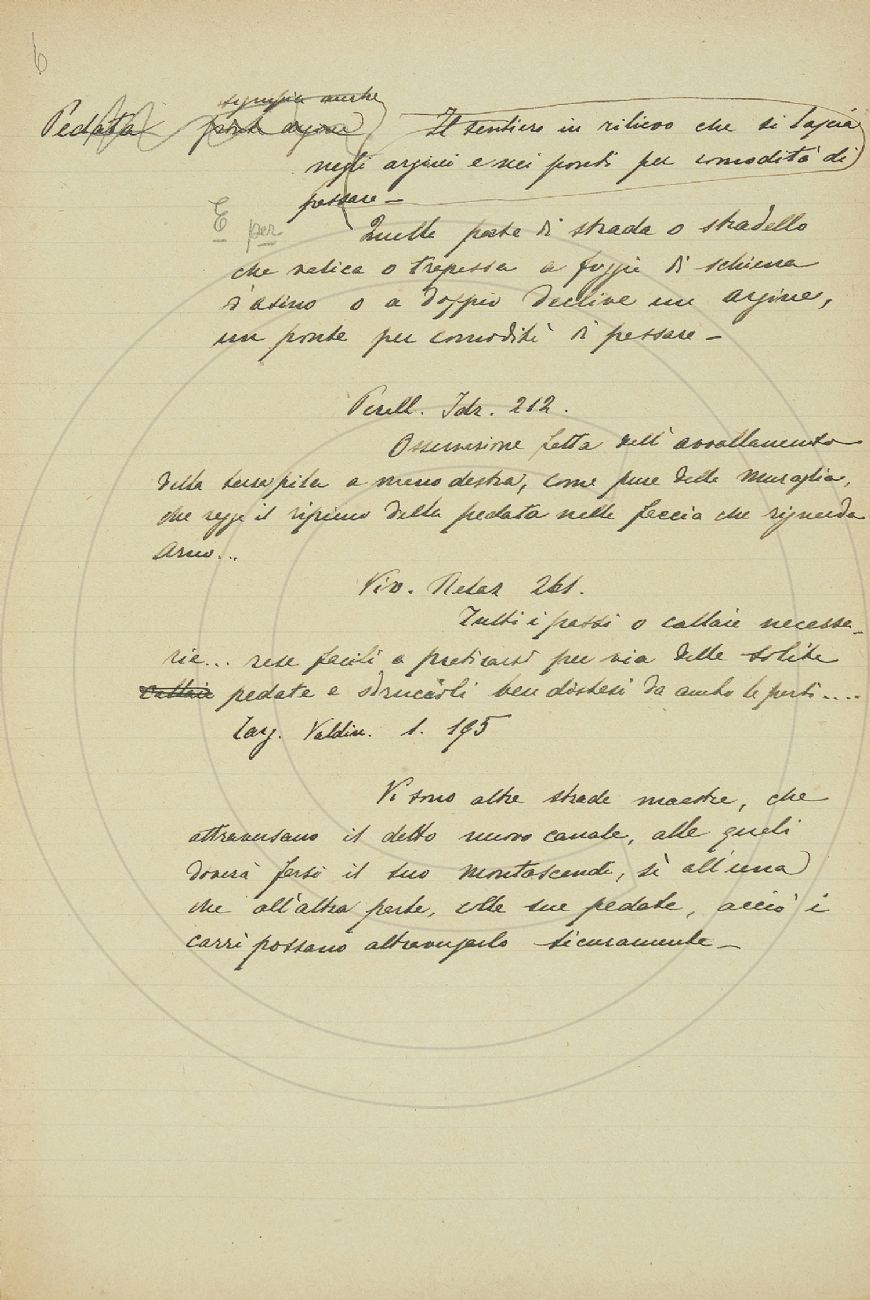 6
significa anche
Pedata ponte argine Il sentiero in rilievo che si lascia
negli argini e nei ponti per comodità di
passare —
E per Quella parte di strada o stradello
che valica o trapassa a foggia di schiena
d'asino o a doppio declive un argine,
un ponte per comodità di passare —
Perell. Idr. 212.
Osservazione fatta dell'avvallamento
della terza pila a mano destra, come pure della muraglia,
che regge il ripieno della pedata nella faccia che riguarda
Arno...
Viv. Relaz 261.
Tutti i passi o callaie necessa-
rie... rese facili a praticarsi per via delle solite
callaie pedate e sdruccioli ben distesi da ambo le parti....
Targ. Valdin. 1. 195
Vi sono altre strade maestre, che
attraversano il detto nuovo canale, alle quali
dovrà farsi il suo montascende, sì all'una
che all'altra parte, colle sue pedate, acciò i
carri possano attraversarlo sicuramente —